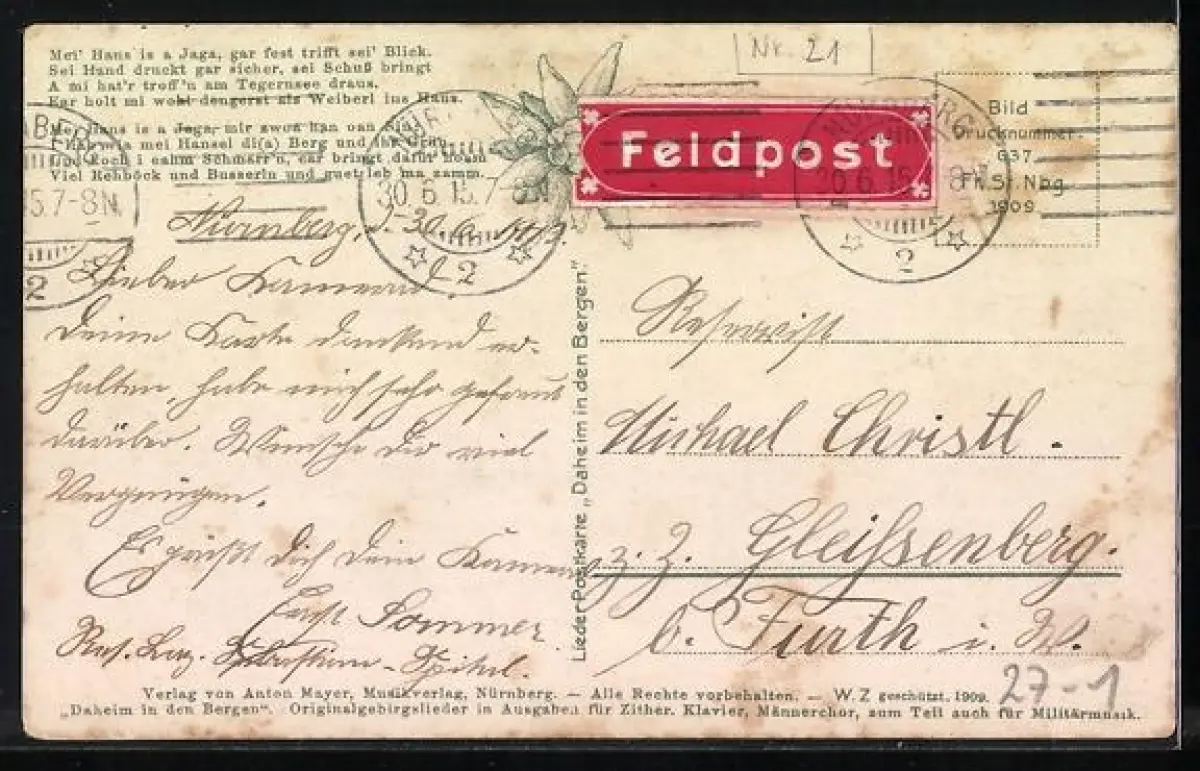 Mei' Hans is a Jaga, gar fest trifft sei' Blick.
Sei Hand druckt gar sicher, sei Schuß bringt
A mi hat'r troff'n am Tegernsee draus.
Ear holt mi wohl dengerst als Weiberl ins Haus.
Mei Hans is a Jaga, mir zwoa han oan
wia mei Hansel di(a) Berg und ihr Grün
Und koch i eahm Schmarr'n, ear bringt dafür hoam
Viel Rehböck und Busserln und guet leb'ma zamm.
Nr. 21
Feldpost
Bild
Drucknummer
637
Fr. S. Nbg.
1909.
NÜRNBERG
30.6.15.7-8N
2
NÜRNBERG
30.6.15. 8-
2
5.7-8N
2
Nürnberg, d. 30.6.
Lieber Kamerad!
Deine Karte dankend er-
halten, habe mich sehr gefreut
darüber. Wünsche Dir viel
Vergnügen.
Es grüßt Dich Dein Kamerad
Sommer
Res. Laz. Sebastian-Spital.
Lieder Postkarte „Daheim in den Bergen."
Reservist
Michael Christl.
z. Z. Gleißenberg.
b. Furth i. W.
27-1
Verlag von Anton Mayer, Musikverlag, Nürnberg. — Alle Rechte vorbehalten. — W. Z geschützt. 1909.
„Daheim in den Bergen". Originalgebirgslieder in Ausgaben für Zither. Klavier, Männerchor, zum Teil auch für Militärmusik.